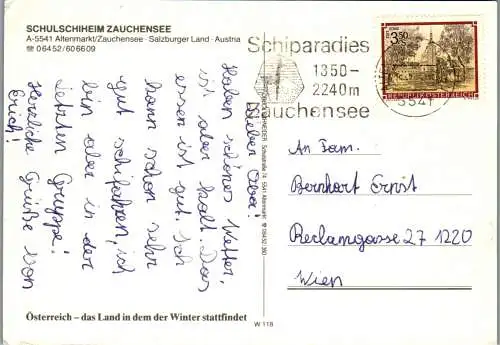 SCHULSCHIHEIM ZAUCHENSEE
A-5541 Altenmarkt/Zauchensee · Salzburger Land · Austria
☎ 06452/606609
Lieber Opa!
Haben schönes Wetter,
ist aber kalt. Das
essen ist gut. Ich
kann schon sehr
gut schifahren, ich
bin aber in der
letzten Gruppe!
Herzliche Grüße von
Erich!
Österreich – das Land in dem der Winter stattfindet
W 118
Schiparadies
1350–
2240m
Zauchensee
5541
3.50
REPUBLIK ÖSTERREICH
An Fam.
Bernhart Ernst
Reclamgasse 27 1220
Wien